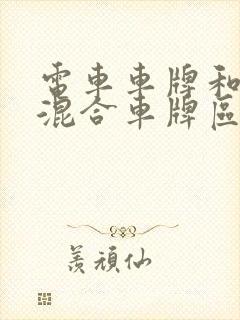 電車車牌和
混合車牌區
羨頑仙